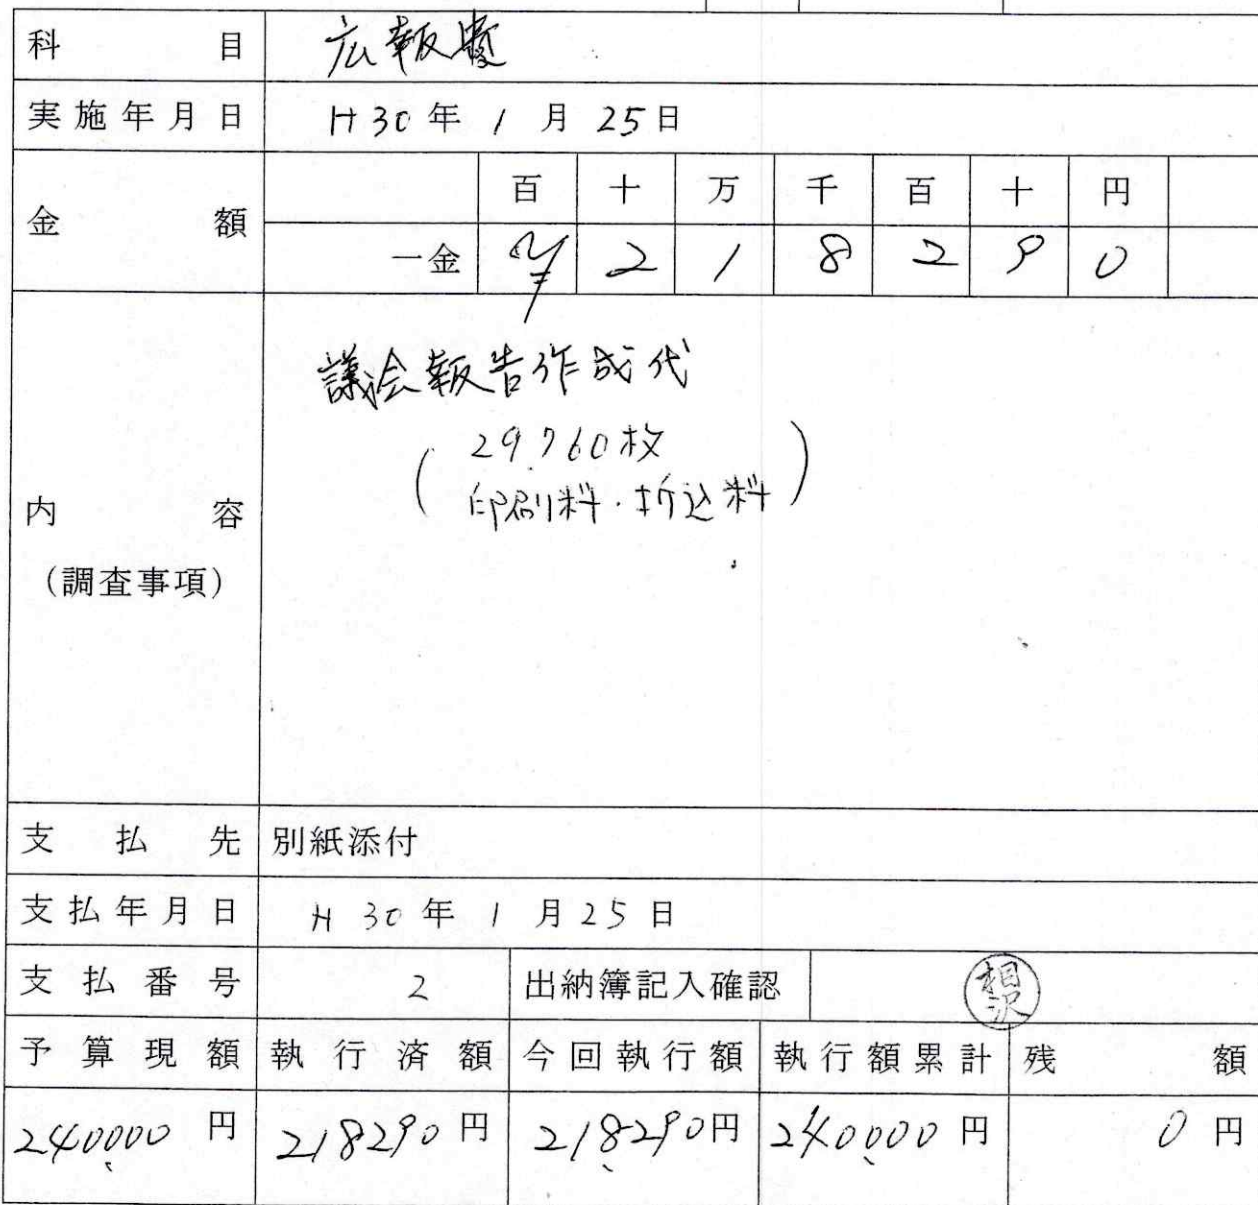 科目 広報費
実施年月日 H30年1月25日
金額 百 十 万 千 百 十 円
一金 ¥ 2 1 8 2 9 0
議会報告作成代
(29,760枚
印刷料・折込料)
内容
(調査事項)
支払先 別紙添付
支払年月日 H30年1月25日
支払番号 2 出納簿記入確認 相沢
予算現額 執行済額 今回執行額 執行額累計 残額
240000円 218290円 218290円 240000円 0円